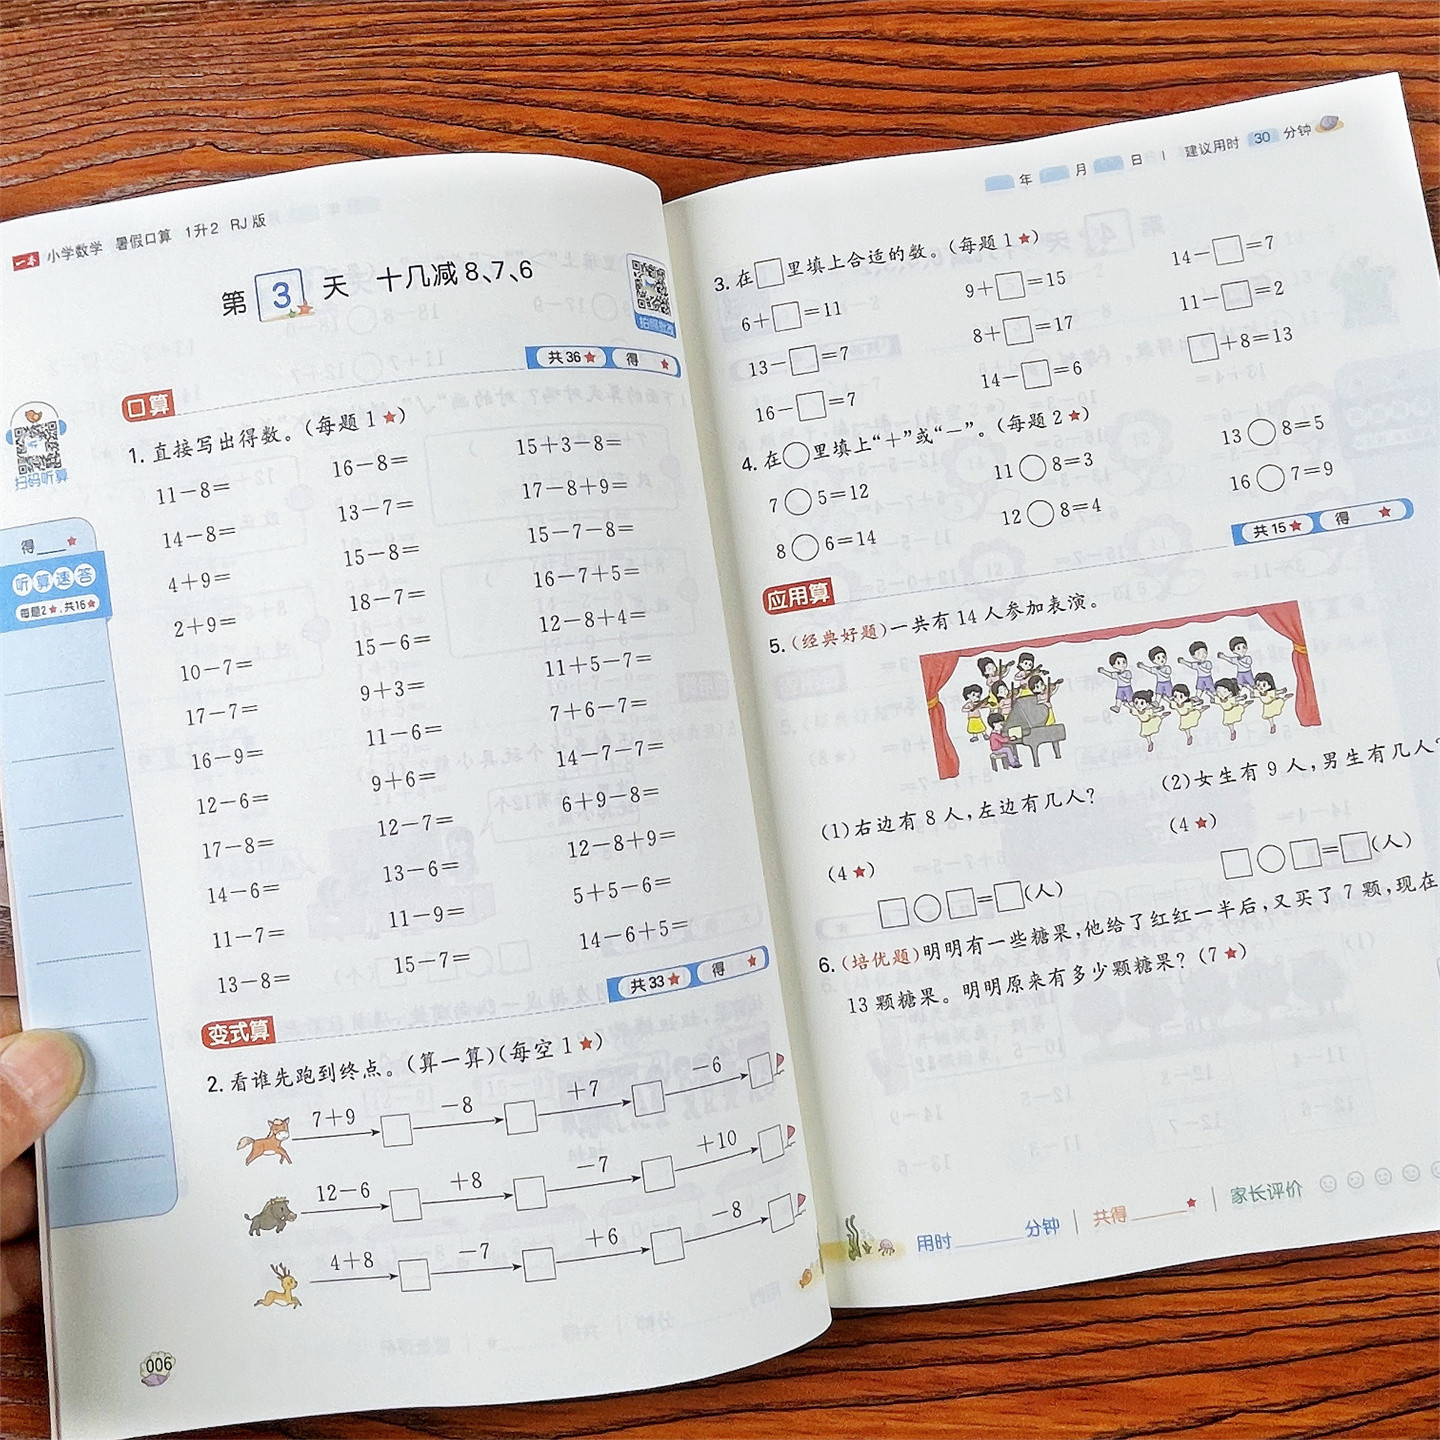 一本 小学数学 暑假口算 1升2 RJ版
第3天 十几减8、7、6
扫码听算
得____★
听算速答
每题2★,共16★
共36★ 得 ★
口算
1. 直接写出得数。(每题1★)
11-8= 16-8= 15+3-8=
14-8= 13-7= 17-8+9=
4+9= 15-8= 15-7-8=
2+9= 18-7= 16-7+5=
10-7= 15-6= 12-8+4=
17-7= 9+3= 11+5-7=
16-9= 11-6= 7+6-7=
12-6= 9+6= 14-7-7=
17-8= 12-7= 6+9-8=
14-6= 13-6= 12-8+9=
11-7= 11-9= 5+5-6=
13-8= 15-7= 14-6+5=
共33★ 得 ★
变式算
2. 看谁先跑到终点。(算一算)(每空1★)
7+9 -8 +7 -6
12-6 +8 -7 +10
4+8 -7 +6 -8
006
年 月 日 | 建议用时 30 分钟
3. 在□里填上合适的数。(每题1★)
6+□=11 9+□=15 14-□=7
13-□=7 8+□=17 11-□=2
16-□=7 14-□=6 □+8=13
4. 在○里填上“+”或“-”。(每题2★)
7○5=12 11○8=3 13○8=5
8○6=14 12○8=4 16○7=9
共15★ 得 ★
应用算
5. (经典好题)一共有14人参加表演。
(1)右边有8人,左边有几人?
(4★)
□○□=□(人)
(2)女生有9人,男生有几人?
(4★)
□○□=□(人)
6. (培优题)明明有一些糖果,他给了红红一半后,又买了7颗,现在
13颗糖果。明明原来有多少颗糖果?(7★)
用时______分钟 | 共得______★ | 家长评价